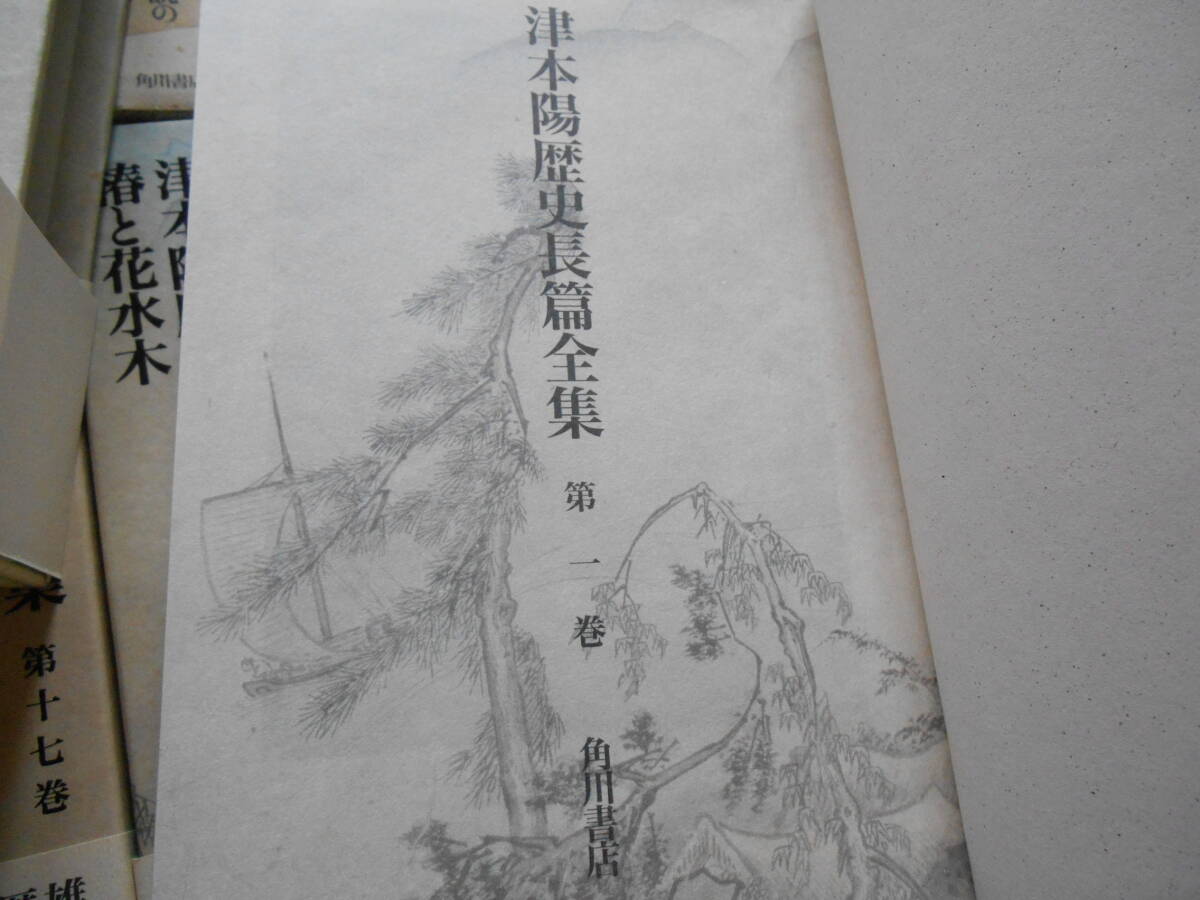 津本陽歴史長篇全集
第一巻
角川書店
角川書店
椿と花水木
津本陽
第十七巻
雄